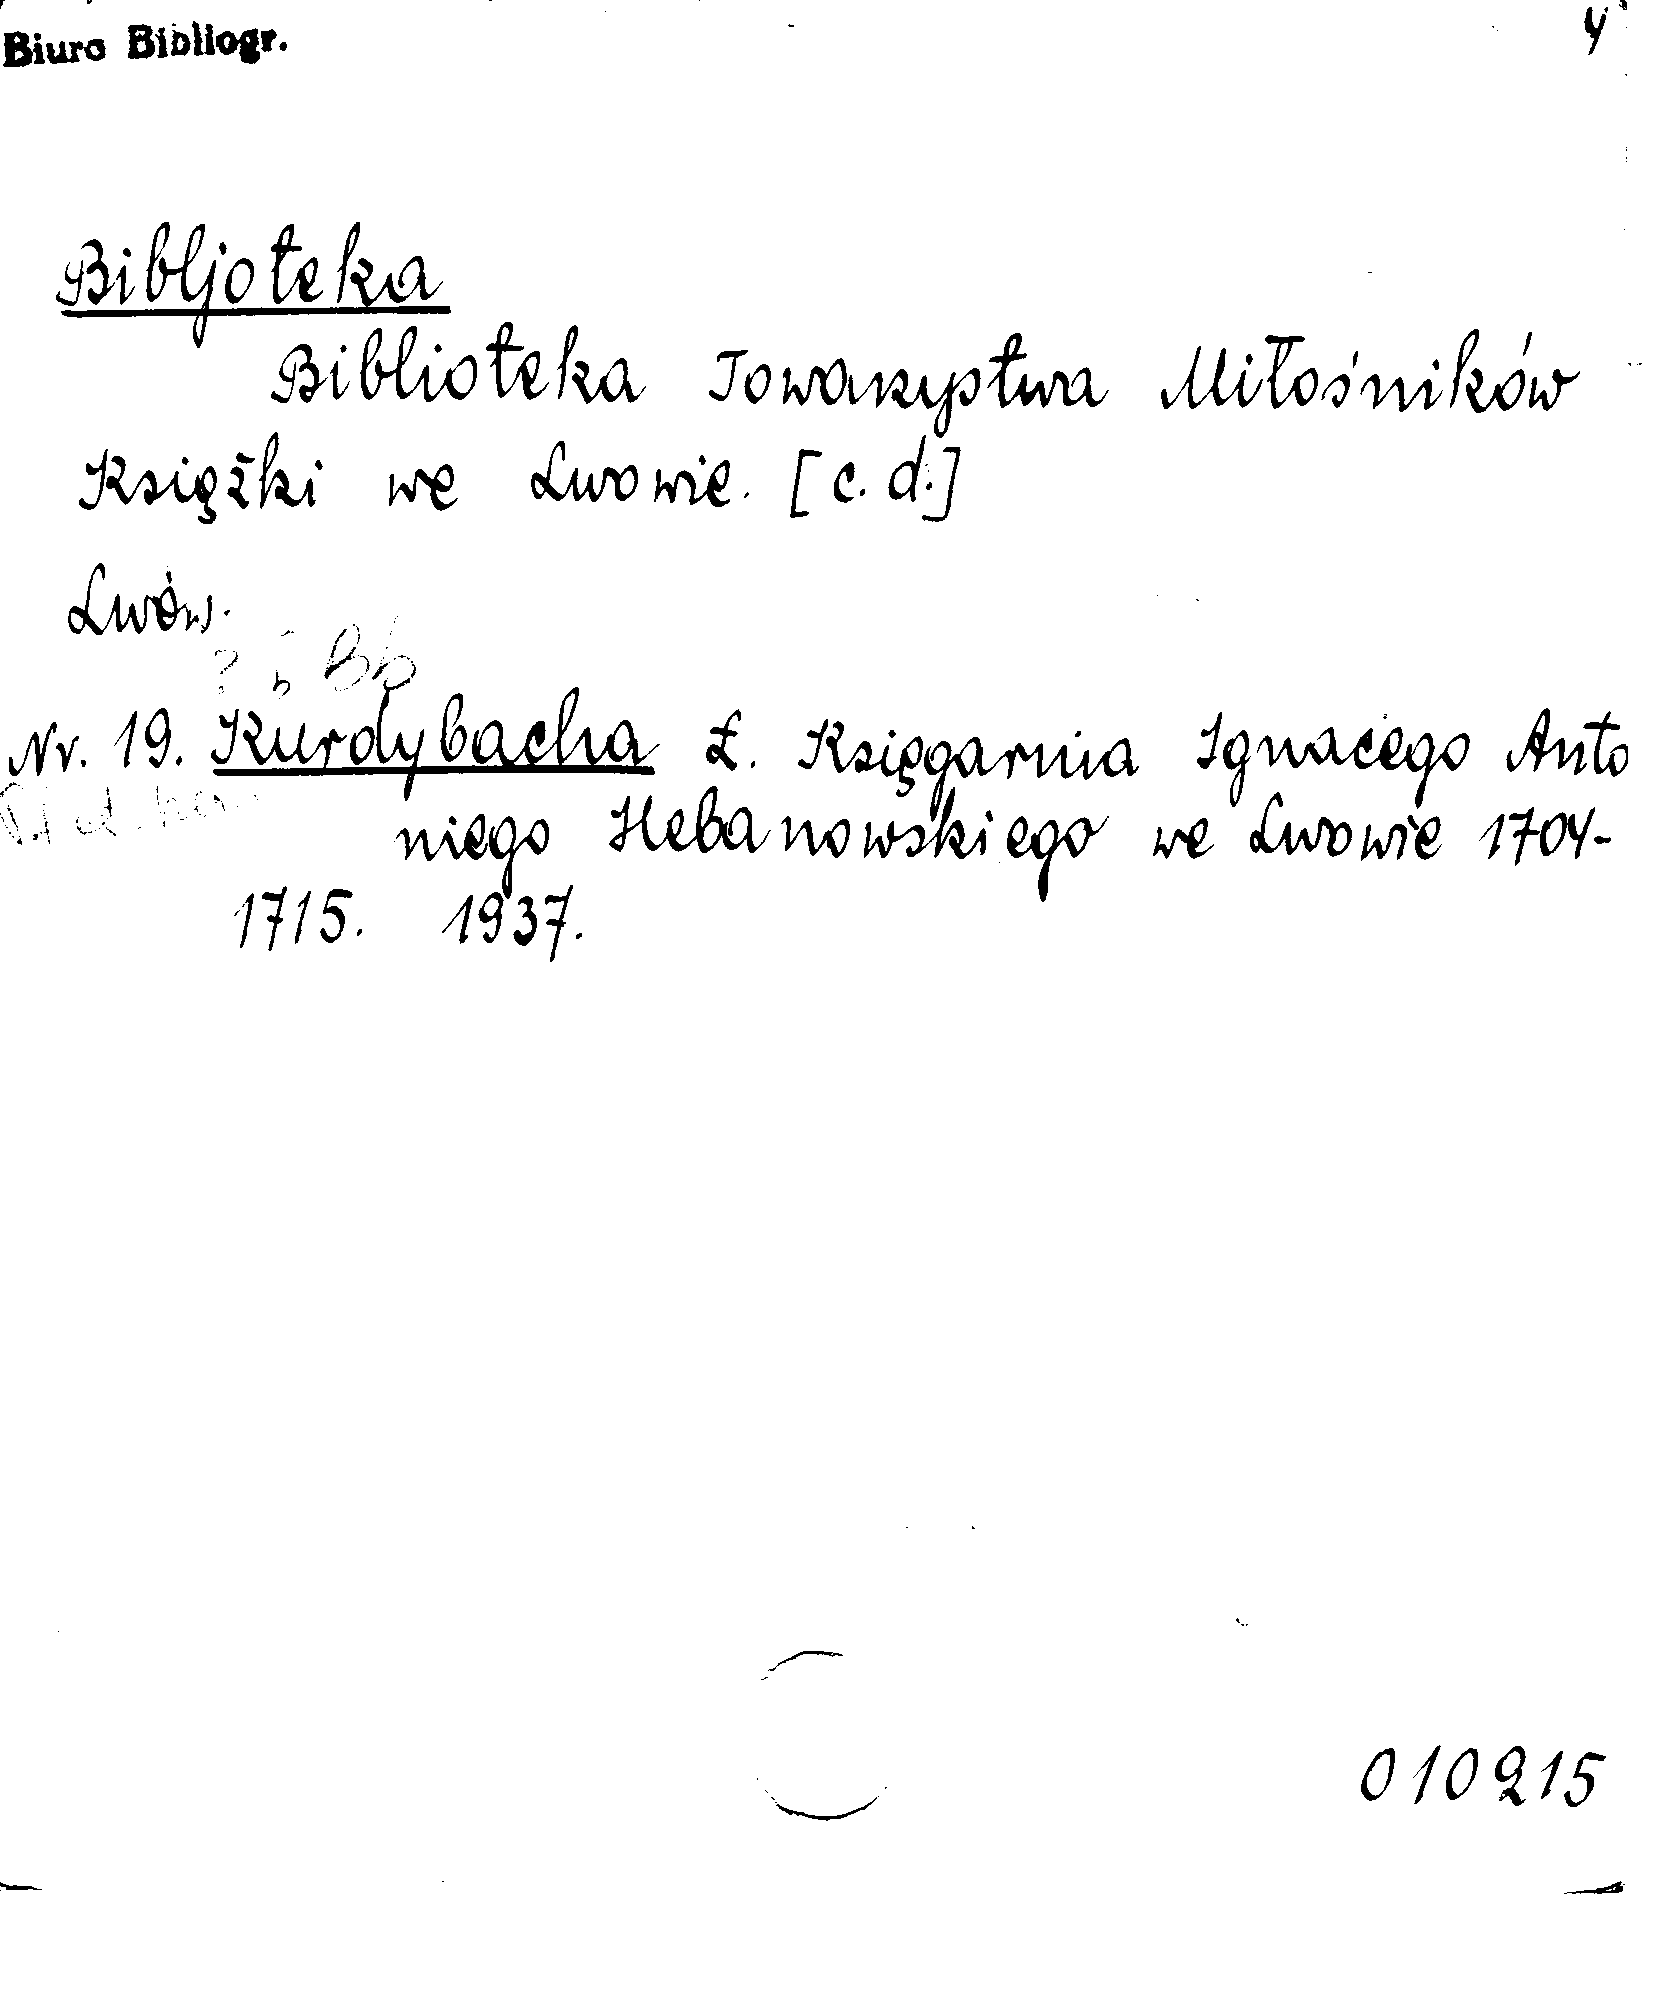 Biuro Bibliogr.
4
Bibljoteka
Biblioteka Towarzystwa Miłośników
Książki we Lwowie. [c.d.]
Lwów.
? i Bb
Nr. 19. Kurdybacha Ł. Księgarnia Ignacego Anto
niego Hebanowskiego we Lwowie 1704-
1715. 1937.
010215